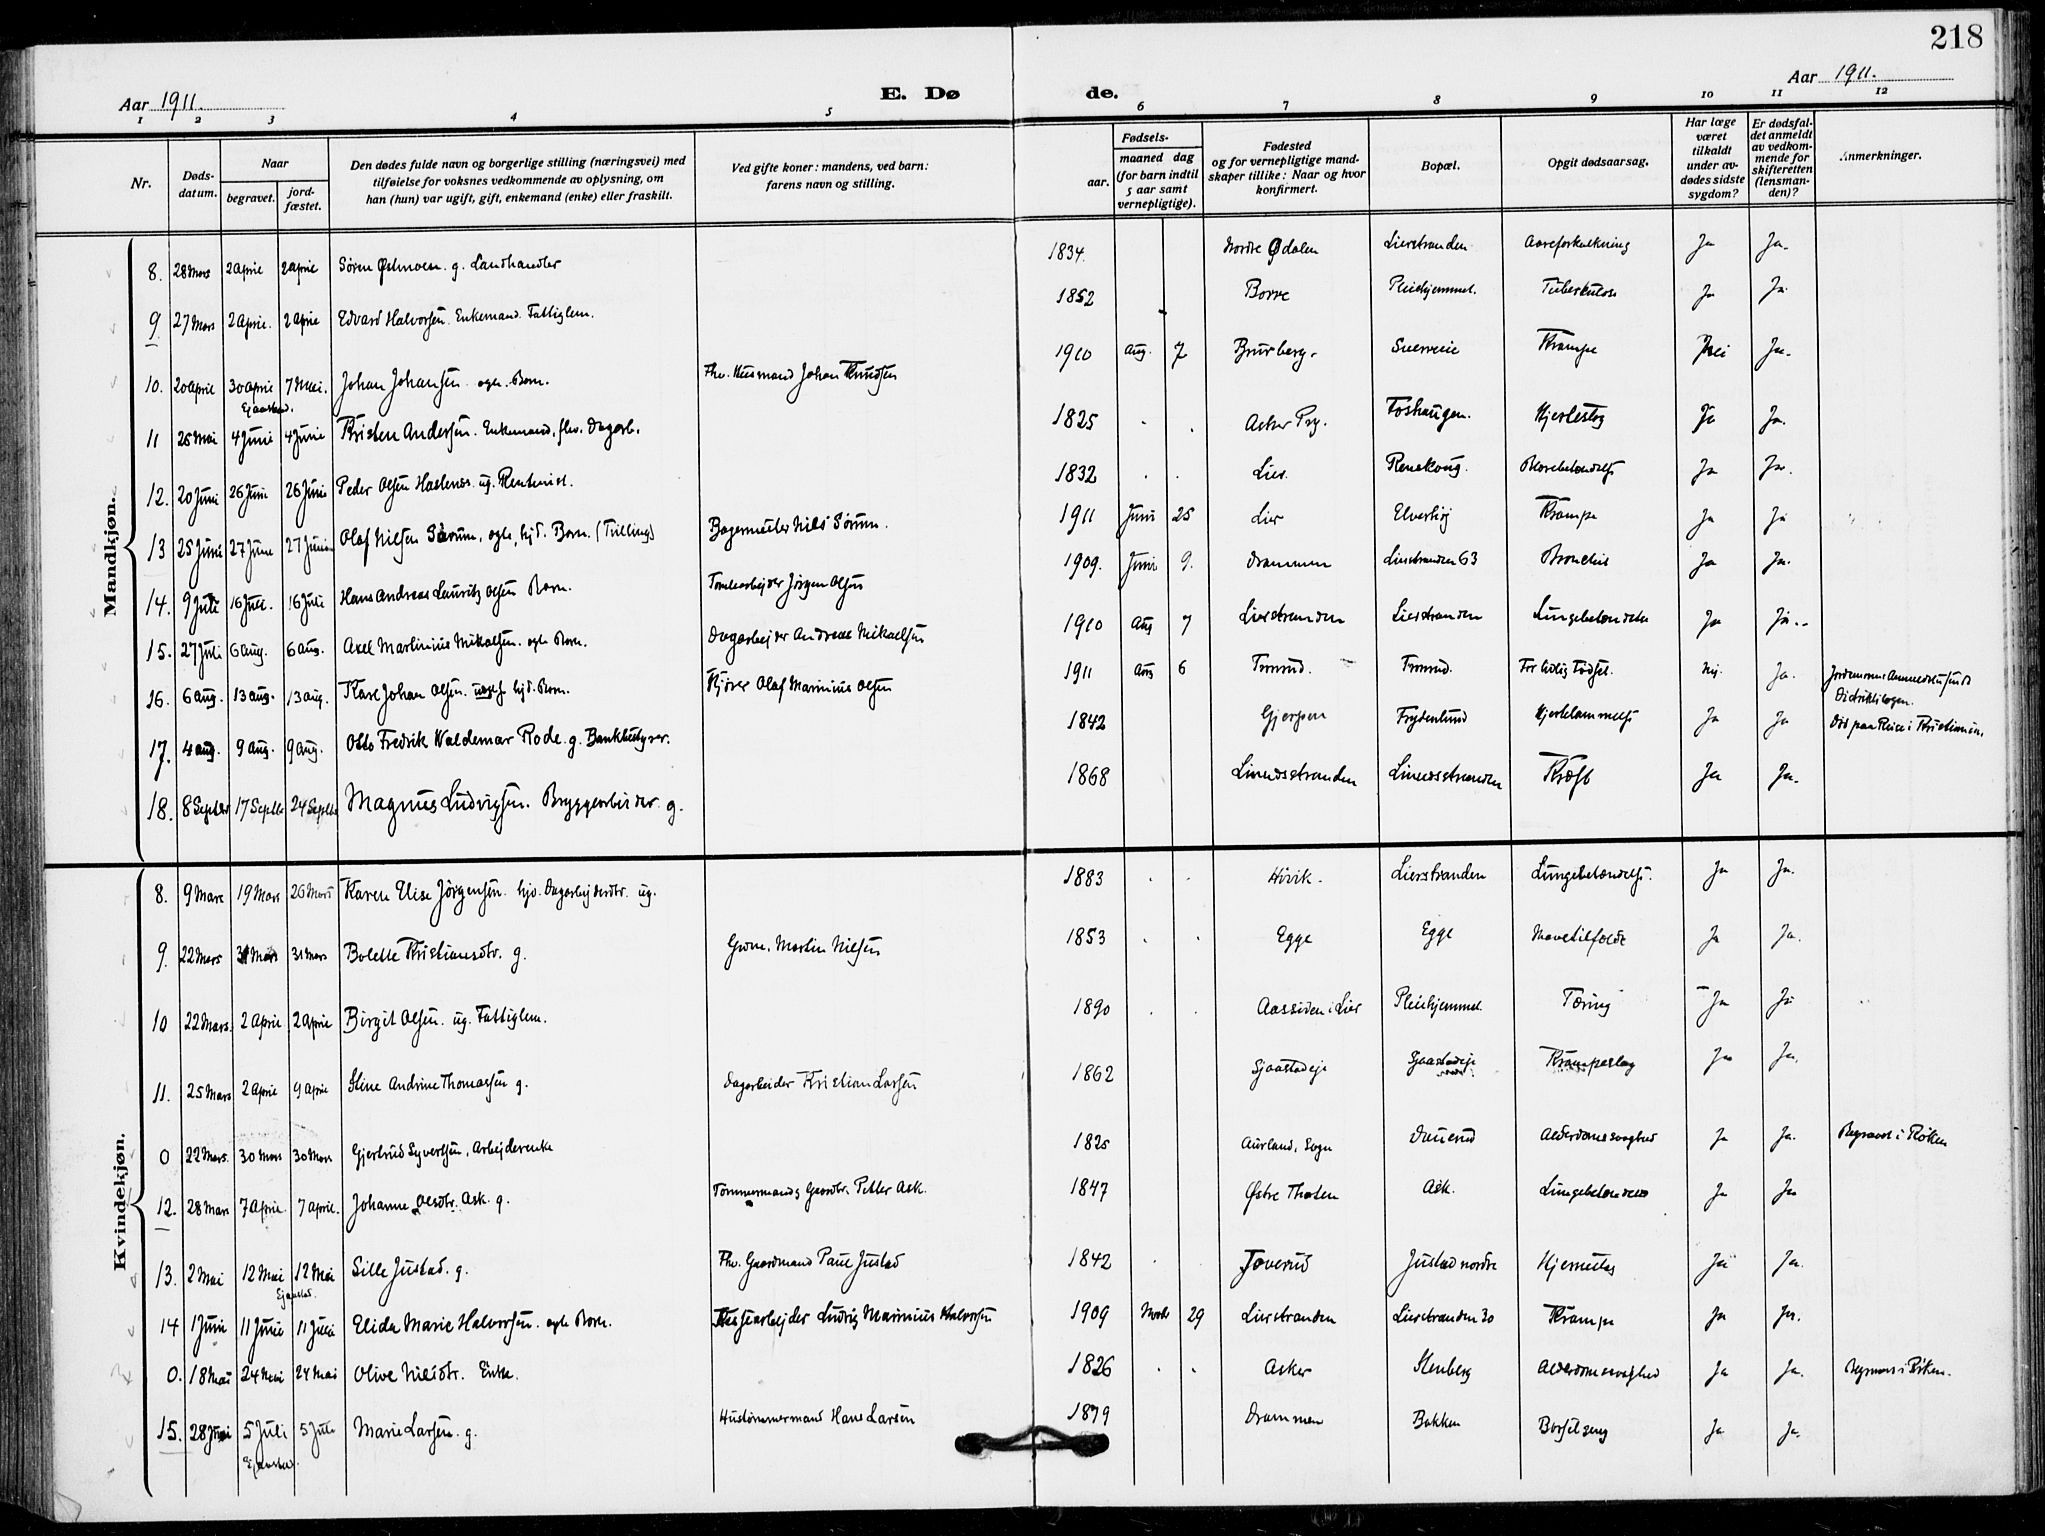 218
Aar 1911. E. Dø de. Aar 1911.
1 2 3 4 5 6 7 8 9 10 11 12
Nr. Døds-datum. Naar begravet. jord-fæstet. Den dødes fulde navn og borgerlige stilling (næringsvei) med tilføielse for voksnes vedkommende av oplysning, om han (hun) var ugift, gift, enkemand (enke) eller fraskilt. Ved gifte koner: mandens, ved barn: farens navn og stilling. Fødsels- aar. maaned dag (for barn indtil 5 aar samt vernepligtige). Fødested og for vernepligtige mand-skaper tillike: Naar og hvor konfirmert. Bopæl. Opgit dødsaarsag. Har læge været tilkaldt under av-dødes sidste sygdom? Er dødsfal-det anmeldt av vedkom-mende for skifteretten (lensman-den)? Anmerkninger.
Mandkjøn.
8. 28 Mars 2 April 2 April Søren Østmoen. g. Landhandler 1834. Nordre Odalen Lierstranden Aareforkalkning Ja Ja.
9. 27 Mars 2 April. 2 April Edvard Halvorsen. Enkemand. Fattiglem. 1852 Borre Pleiehjemmet. Tuberkulose Ja Ja
10. 20 April 30 April 7 Mai. Johan Johansen. egte. Barn. Fhv. Husmand Johan Knudsen 1910 Aug. 7 Brurberg. Krampe Nei Ja.
11 25 Mai 4 Juni 4 Juni Kristen Andersen. Enkemand, flv. Dagarb. 1825 Asker Prg. Foshaugen. Hjerteslag Ja Ja.
12. 20 Juni 26 Juni 26 Juni Peder Olsen ug. Rentenist. 1832 Lier. Ja Ja.
13 25 Juni 27 Juni 27 Juni Olaf Nilsen Sørum, egte, hjd. Barn. (Tvilling) Bagermester Nils Sørum. 1911 Juni 25 Lier Krampe Ja Ja
14. 9 Juli 16 Juli. 16 Juli Hans Andreas Lauritz Olsen Barn. Tomtearbejder Jørgen Olsen 1909. Juni 9. Drammen Lierstranden 63 Ja Ja.
15. 27 Juli 6 Aug. 6 Aug. Axel Martinius Mikalsen. egte Barn. Dagarbejder Andreas Mikaelsen 1910 Aug 7 Lierstranden Lierstranden Lungebetændelse Ja Ja.
16. 6 Aug. 13 Aug. 13 Aug. Karl Johan Olsen. uegte hjd. Barn. Kjører Olaf Marinius Olsen 1911 Aug 6 Tronrud. Tronrud. For tidlig Fødsel. Nej. Ja.
17. 4 Aug. 9 Aug. 9 Aug. Otto Fredrik Waldemar Rode. g. Bankbestyrer. 1842 Gjerpen Frydenlund Hjertelammelse Ja Ja Død paa Reise i Kristiania.
18. 8 Septbr 17 Septbr 24 Septbr Magnus Ludvigsen. Bryggearbeider. g. 1868 Linnesstranden Linnesstranden Kræft Ja Ja.
Kvindekjøn.
8. 9 Mars 19 Mars 26 Mars Karen Elise Jørgensen. hjv. Dagarbejderdtr. ug. 1883 Hivik. Lierstranden Lungebetændelse. Ja Ja.
9. 22 Mars 31 Mars 31 Mars Bolette Kristiansdtr. g. Grdm. Martin Nilsen 1853 Egge Egge Mavetilfælde Ja Ja.
10 22 Mars. 2 April 2 April Birgit Olsen. ug. Fattiglem. 1890 Aassiden i Lier Pleiehjemmet. Tæring Ja Ja
11. 25 Mars 2 April 9 April Stine Andrine Thomassen g. Dagarbeider Kristian Larsen 1862 Sjaastadeje Sjaastadeje Krampeslag Ja Ja.
0 22 Mars. 30 Mars 30 Mars Gjertrud Syvertsen, Arbejderenke 1825 Aurland, Sogn Alderdomssvaghed Ja Ja. Begravet i Røken
12. 28 Mars 7 April. 7 April. Johanne Olsdtr. Ask. g. Tømmermand Petter Ask. 1847 Østre Thoten Ask. Lungebetændelse Ja Ja
13. 2 Mai 12 Mai 12 Mai Sille Justad. g. Fhv. Gaardmand Paul Justad 1842 Toverud Justad nordre Ja Ja.
14 1 Juni 11 Juni 11 Juni Elida Marie Halvorsen. egte Barn. Ludvig Marinius Halvorsen 1909 Mars 29 Lierstranden Lierstranden 30 Krampe Ja Ja.
0. 18 Mai 24 Mai 24 Mai Olive Nilsdtr. Enke. 1826 Asker Stenberg Alderdomssvaghed Ja Ja. Begravet i Røken.
15. 28 Juni 5 Juli 5 Juli Marie Larsen. g. Hustømmermand Hans Larsen 1879 Drammen Bakken Barselseng Ja Ja.